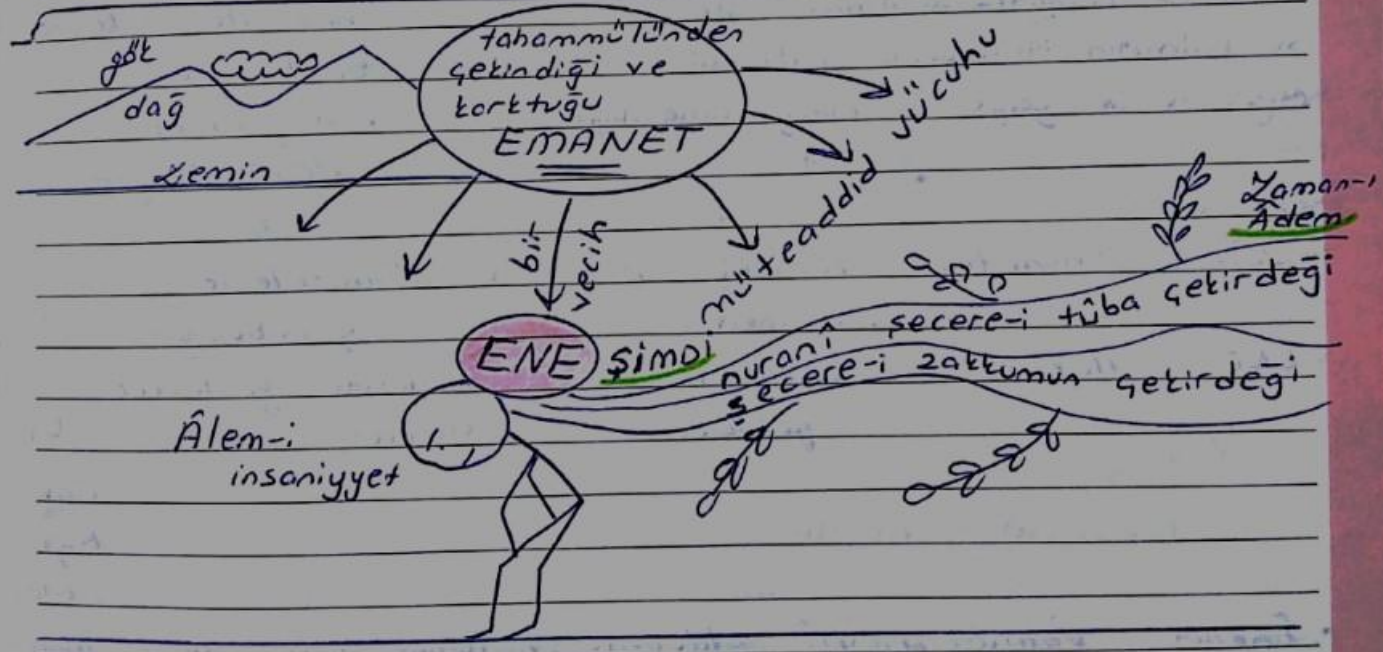 gök
dağ
zemin
tahammülünden
çekindiği ve
korktuğu
EMANET
vücuhu
müteaddid
bir
vecih
Zaman-ı
Âdem
ENE
şimdi
nuranî şecere-i tûba çekirdeği
şecere-i zakkumun çekirdeği
Âlem-i
insaniyyet